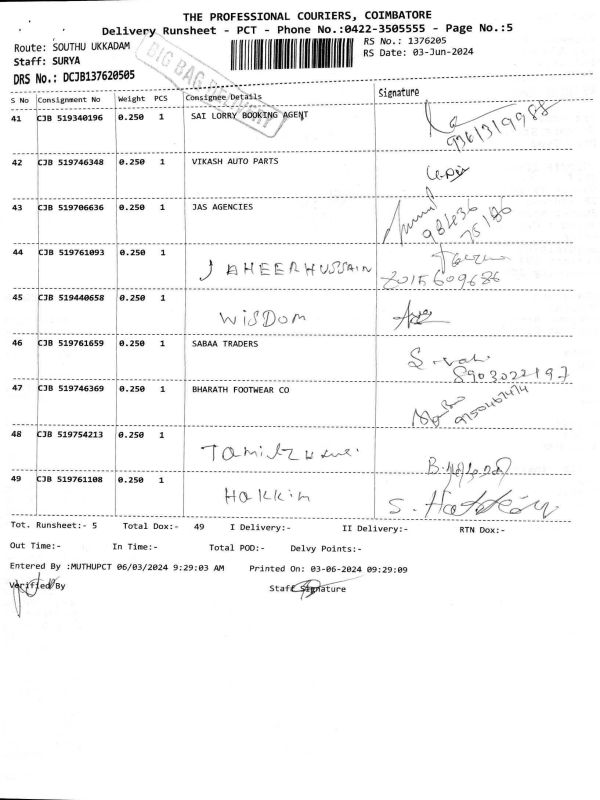 THE PROFESSIONAL COURIERS, COIMBATORE
Delivery Runsheet - PCT - Phone No.:0422-3505555 - Page No.:5
Route: SOUTHU UKKADAM
RS No.: 1376205
Staff: SURYA
RS Date: 03-Jun-2024
DRS No.: DCJB137620505
BIG BAG
S No Consignment No Weight PCS Consignee Details Signature
41 CJB 519340196 0.250 1 SAI LORRY BOOKING AGENT
9361319988
42 CJB 519746348 0.250 1 VIKASH AUTO PARTS
43 CJB 519706636 0.250 1 JAS AGENCIES
98436
75186
44 CJB 519761093 0.250 1
JAHEERHUSSAIN
8015609686
45 CJB 519440658 0.250 1
WISDOM
46 CJB 519761659 0.250 1 SABAA TRADERS
8903022197
47 CJB 519746369 0.250 1 BHARATH FOOTWEAR CO
9750467474
48 CJB 519754213 0.250 1
49 CJB 519761108 0.250 1
Hakkim
Tot. Runsheet:- 5 Total Dox:- 49 I Delivery:- II Delivery:- RTN Dox:-
Out Time:- In Time:- Total POD:- Delvy Points:-
Entered By :MUTHUPCT 06/03/2024 9:29:03 AM Printed On: 03-06-2024 09:29:09
Verified By Staff Signature